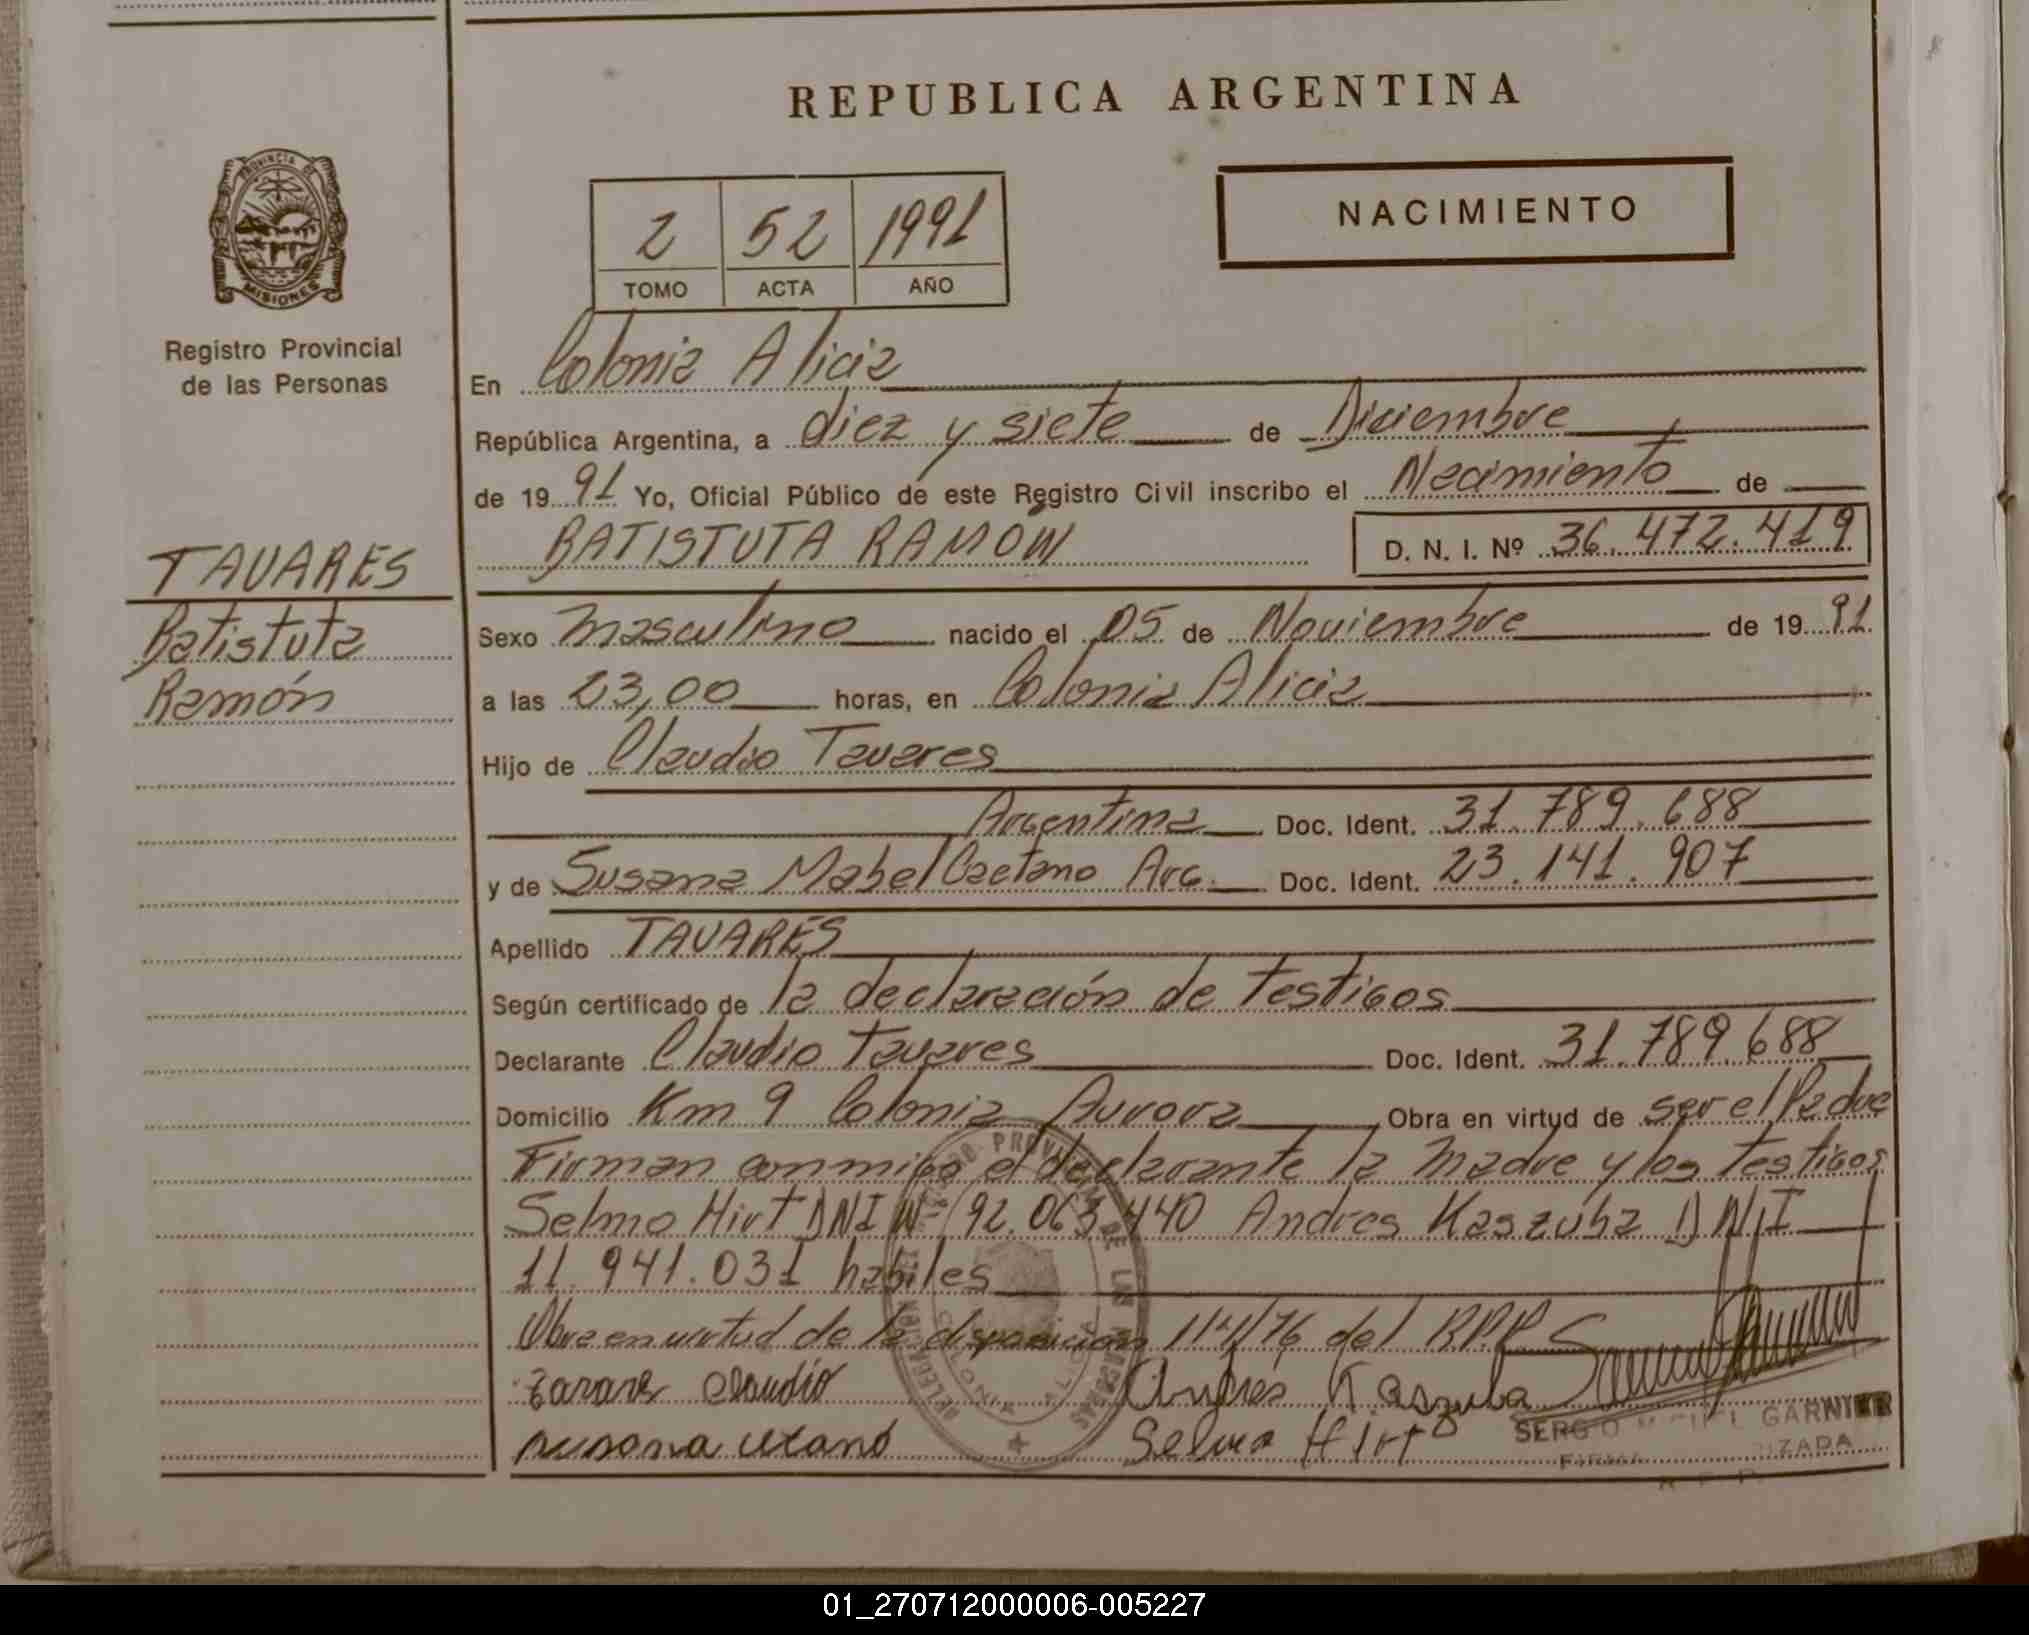 REPUBLICA ARGENTINA
PROVINCIA DE
MISIONES
Registro Provincial
de las Personas
2 52 1991
TOMO ACTA AÑO
NACIMIENTO
En Colonia Alicia
República Argentina, a diez y siete de Diciembre
de 19 91 Yo, Oficial Público de este Registro Civil inscribo el Nacimiento de
BATISTUTA RAMON D. N. I. Nº 36.472.419
TAVARES
Batistuta
Ramón
Sexo masculino nacido el 05 de Noviembre de 19 91
a las 23,00 horas, en Colonia Alicia
Hijo de Claudio Tavares
Argentina Doc. Ident. 31.789.688
y de Susana Mabel Caetano Arg. Doc. Ident. 23.141.907
Apellido TAVARES
Según certificado de la declaración de testigos
Declarante Claudio Tavares Doc. Ident. 31.789.688
Domicilio Km 9 Colonia Aurora Obra en virtud de ser el Padre
Firman conmigo el declarante la Madre y los testigos
Selmo Hirt DNI Nº 92.063.440 Andres Kaszuba DNI
11.941.031 habiles
Obra en virtud de la disposicion 114/76 del R.P.P.
Tavare Claudio Andres Kaszuba
Susana Cetano Selmo Hirt
SERGIO MIGUEL GARNIER
FIRMA
01_270712000006-005227